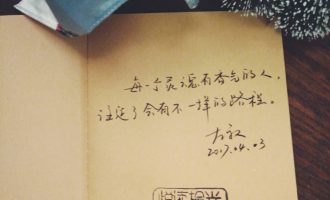 每一个灵魂有香气的人，
注定了会有不一样的路程。
2017.04.03